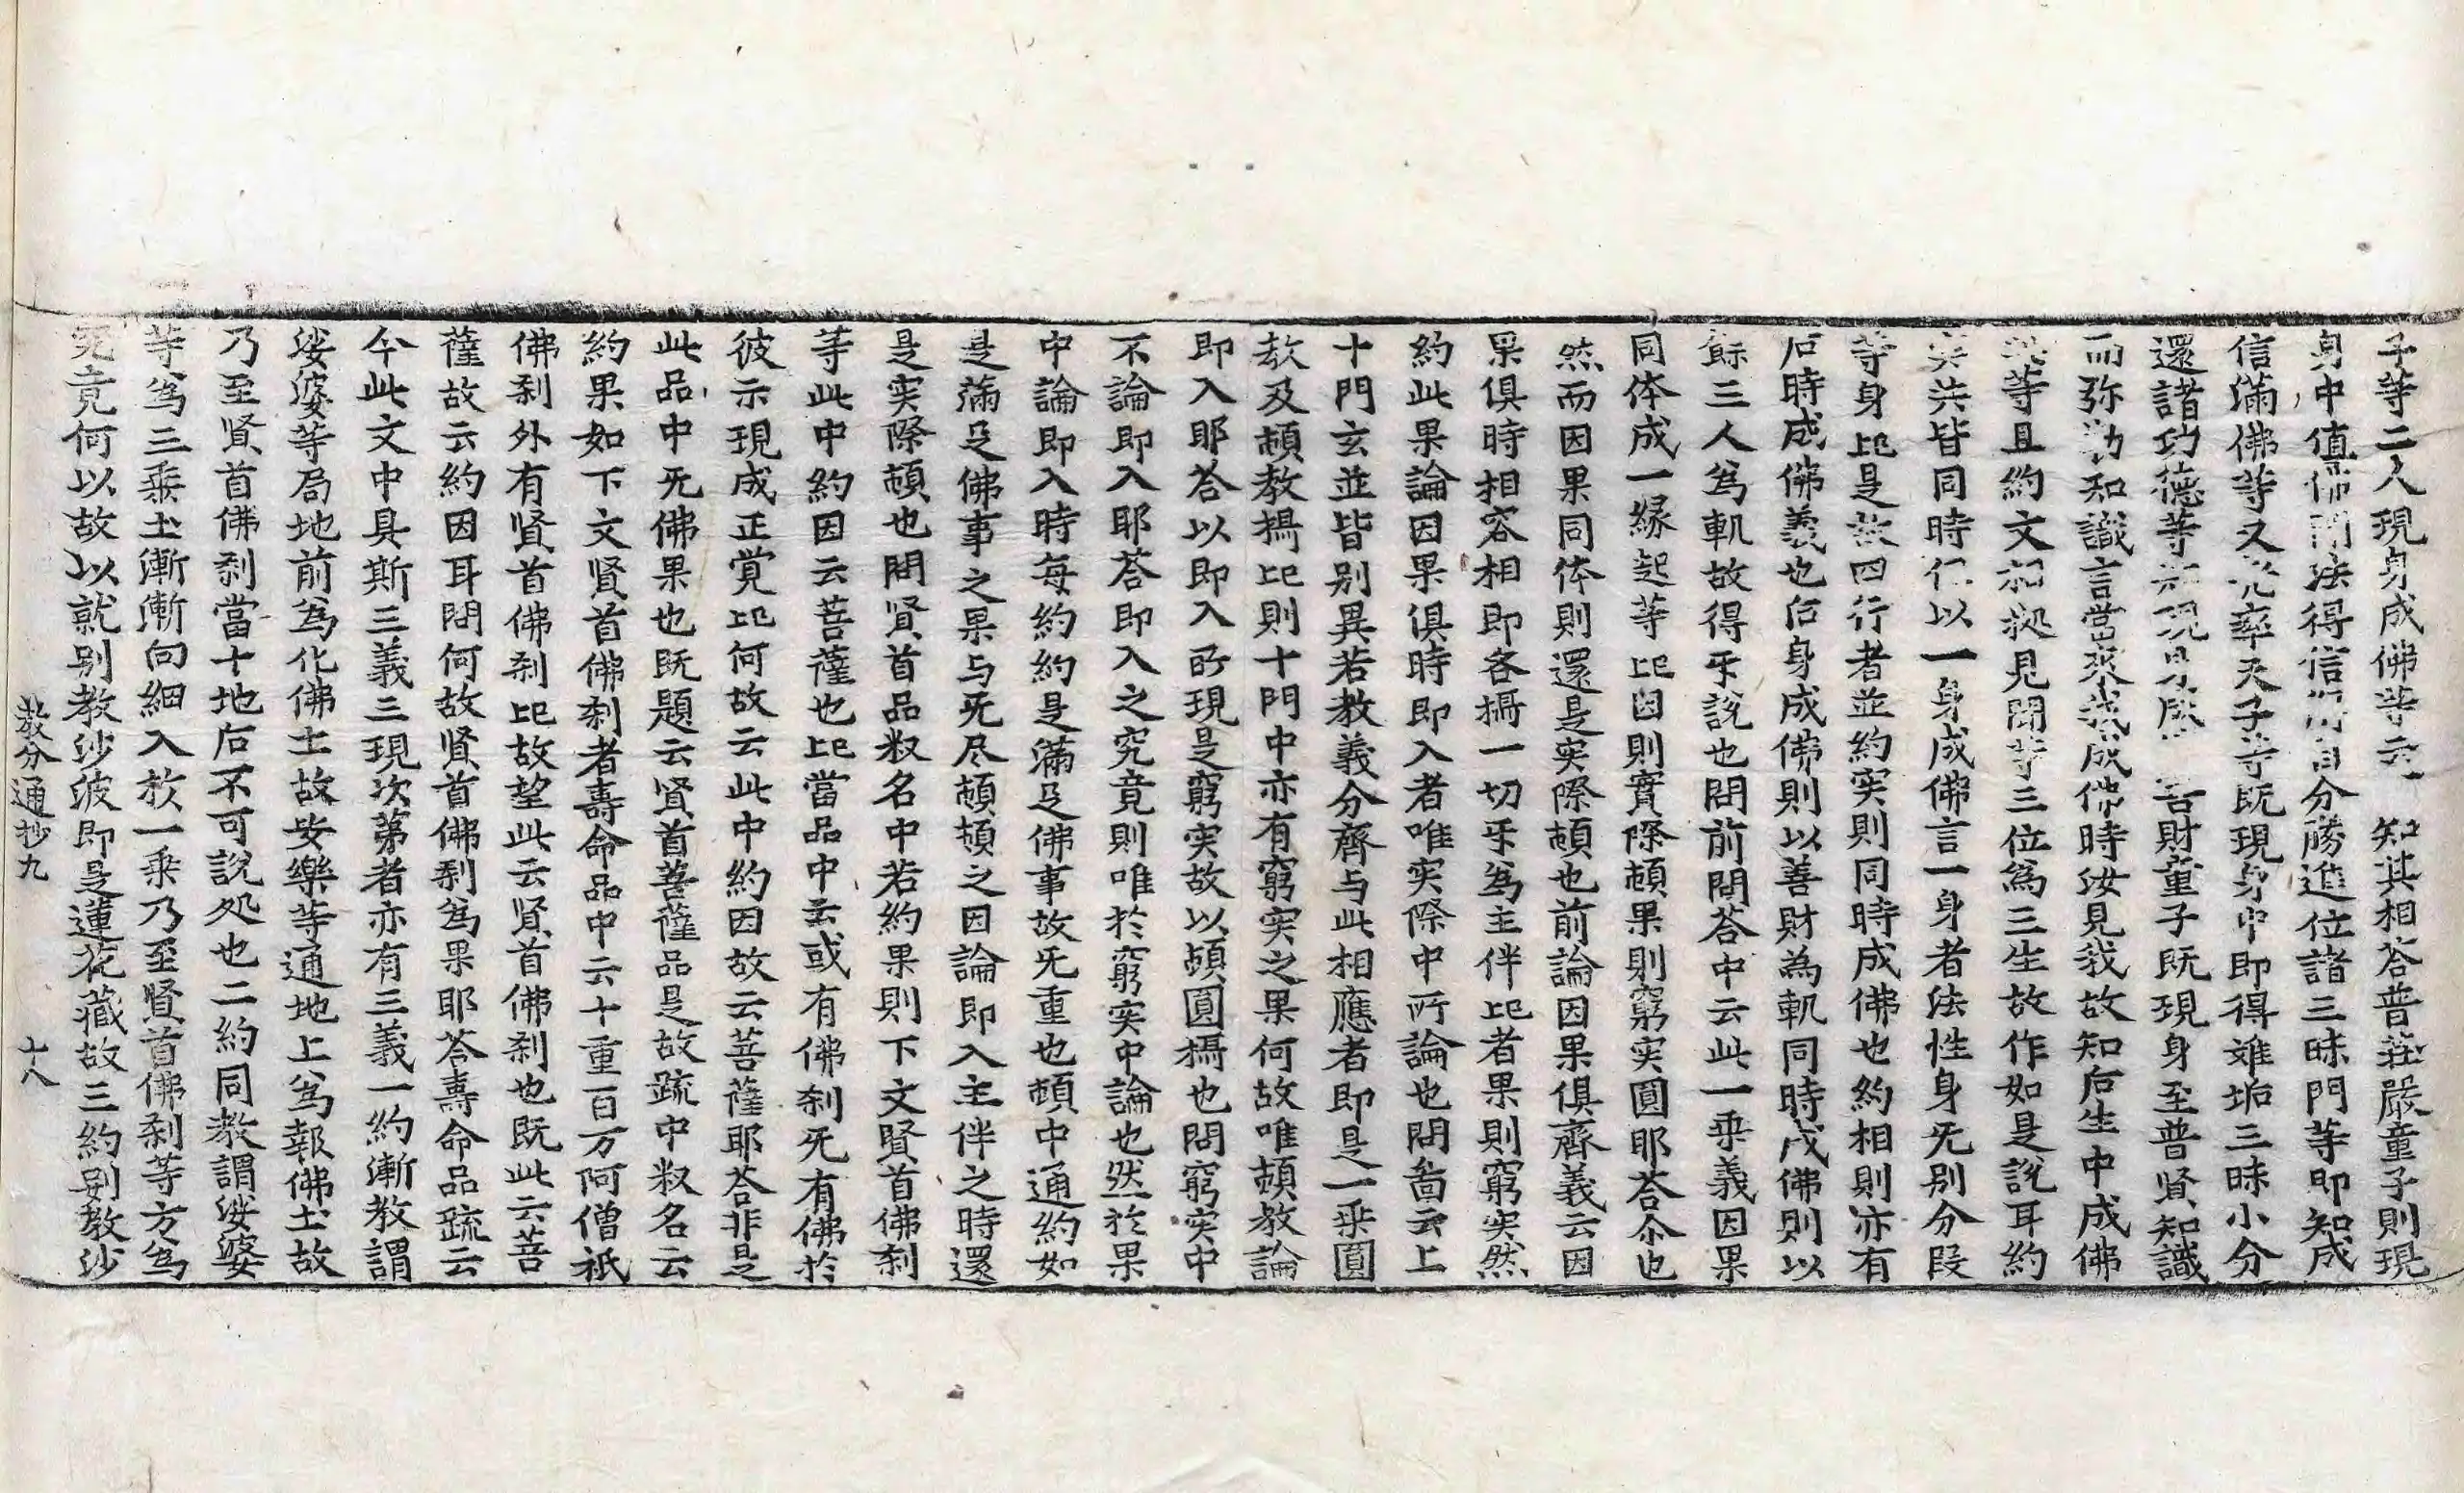 子等二人現身成佛等云 知其相答普莊嚴童子則現
身中值佛聞法得信 自分勝進位諸三昧門等即知成
信滿佛等又 率天子等既現身中即得離垢三昧小分
還諸功德等 現 成 善財童子既現身至普賢知識
而弥勒知識言當來 成佛時汝見我故知后生中成佛
等且約文相 見聞等三位爲三生故作如是說耳約
实 皆同時 以一身成佛言一身者法性身旡别分段
等身 是故四行者並約实則同時成佛也約相則亦有
后時成佛義也后身成佛則以善財為軌同時成佛則以
餘三人爲軌故得乎說也問前問荅中云此一乗義因果
同体成一緣起等此因則實際頓果則窮实圓耶荅尒也
然而因果同体則還是实際頓也前論因果俱齊義云因
果俱時相容相即各攝一切乎爲主伴此者果則窮实然
約此果論因果俱時即入者唯实際中所論也問 云上
十門玄並皆别異若教義分齊与此相應者即是一乗圓
教及頓教攝此則十門中亦有窮实之果何故唯頓教論
即入耶荅以即入所現是窮实故以頓圓攝也問窮实中
不論即入耶荅即入之究竟則唯於窮实中論也然於果
中論即入時每約約是滿足佛事故旡重也頓中通約如
是滿足佛事之果与旡尽頓頓之因論即入主伴之時還
是实際頓也問賢首品叔名中若約果則下文賢首佛刹
等此中約因云菩薩也此當品中云或有佛刹旡有佛於
彼示現成正覚此何故云此中約因故云菩薩耶荅非是
此品中旡佛果也既題云賢首菩薩品是故疏中叔名云
約果如下文賢首佛刹者壽命品中云十重百万阿僧祇
佛刹外有賢首佛刹此故望此云賢首佛刹也既此云菩
薩故云約因耳問何故賢首佛刹爲果耶荅壽命品疏云
今此文中具斯三義三現次苐者亦有三義一約漸教謂
娑婆等局地前爲化佛土故安樂等通地上爲報佛土故
乃至賢首佛刹當十地后不可說処也二約同教謂娑婆
等爲三乗土漸漸向細入於一乗乃至賢首佛刹等方爲
究竟何以故以就别教沙波即是蓮花藏故三約别教沙
教分通抄九 十八